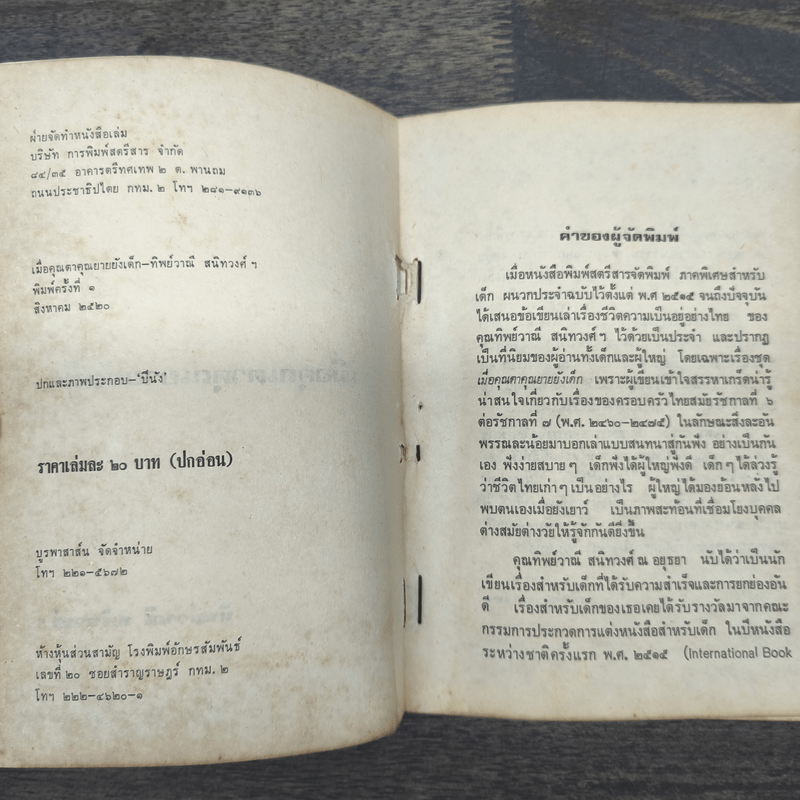 ฝ่ายจัดทำหนังสือเล่ม
บริษัท การพิมพ์สตรีสาร จำกัด
๘๔/๓๕ อาคารตรีทศเทพ ๒ ต. พานถม
ถนนประชาธิปไตย กทม. ๒ โทฯ ๒๘๑-๙๑๓๖
เมื่อคุณตาคุณยายยังเด็ก-ทิพย์วาณี สนิทวงศ์ ฯ
พิมพ์ครั้งที่ ๑
สิงหาคม ๒๕๒๐
ปกและภาพประกอบ-'ปีนัง'
ราคาเล่มละ ๒๐ บาท (ปกอ่อน)
บูรพาสาส์น จัดจำหน่าย
โทฯ ๒๒๑-๕๖๗๒
ห้างหุ้นส่วนสามัญ โรงพิมพ์อักษรสัมพันธ์
เลขที่ ๒๐ ซอยสำราญราษฎร์ กทม. ๒
โทฯ ๒๒๒-๔๖๒๐-๑
คำของผู้จัดพิมพ์
เมื่อหนังสือพิมพ์สตรีสารจัดพิมพ์ ภาคพิเศษสำหรับ
เด็ก ผนวกประจำฉบับไว้ตั้งแต่ พ.ศ ๒๕๑๕ จนถึงปัจจุบัน
ได้เสนอข้อเขียนเล่าเรื่องชีวิตความเป็นอยู่อย่างไทย ของ
คุณทิพย์วาณี สนิทวงศ์ ฯ ไว้ด้วยเป็นประจำ และปรากฏ
เป็นที่นิยมของผู้อ่านทั้งเด็กและผู้ใหญ่ โดยเฉพาะเรื่องชุด
เมื่อคุณตาคุณยายยังเด็ก เพราะผู้เขียนเข้าใจสรรหาเกร็ดน่ารู้
น่าสนใจเกี่ยวกับเรื่องของครอบครัวไทยสมัยรัชกาลที่ ๖
ต่อรัชกาลที่ ๗ (พ.ศ. ๒๔๖๐-๒๔๗๕) ในลักษณะสิ่งละอัน
พรรณละน้อยมาบอกเล่าแบบสนทนาสู่กันฟัง อย่างเป็นกัน
เอง ฟังง่ายสบาย ๆ เด็กฟังได้ผู้ใหญ่ฟังดี เด็ก ๆ ได้ล่วงรู้
ว่าชีวิตไทยเก่า ๆ เป็นอย่างไร ผู้ใหญ่ได้มองย้อนหลังไป
พบตนเองเมื่อยังเยาว์ เป็นภาพสะท้อนที่เชื่อมโยงบุคคล
ต่างสมัยต่างวัยให้รู้จักกันดียิ่งขึ้น
คุณทิพย์วาณี สนิทวงศ์ ณ อยุธยา นับได้ว่าเป็นนัก
เขียนเรื่องสำหรับเด็กที่ได้รับความสำเร็จและการยกย่องอัน
ดี เรื่องสำหรับเด็กของเธอเคยได้รับรางวัลมาจากคณะ
กรรมการประกวดการแต่งหนังสือสำหรับเด็ก ในปีหนังสือ
ระหว่างชาติครั้งแรก พ.ศ. ๒๕๑๕ (International Book